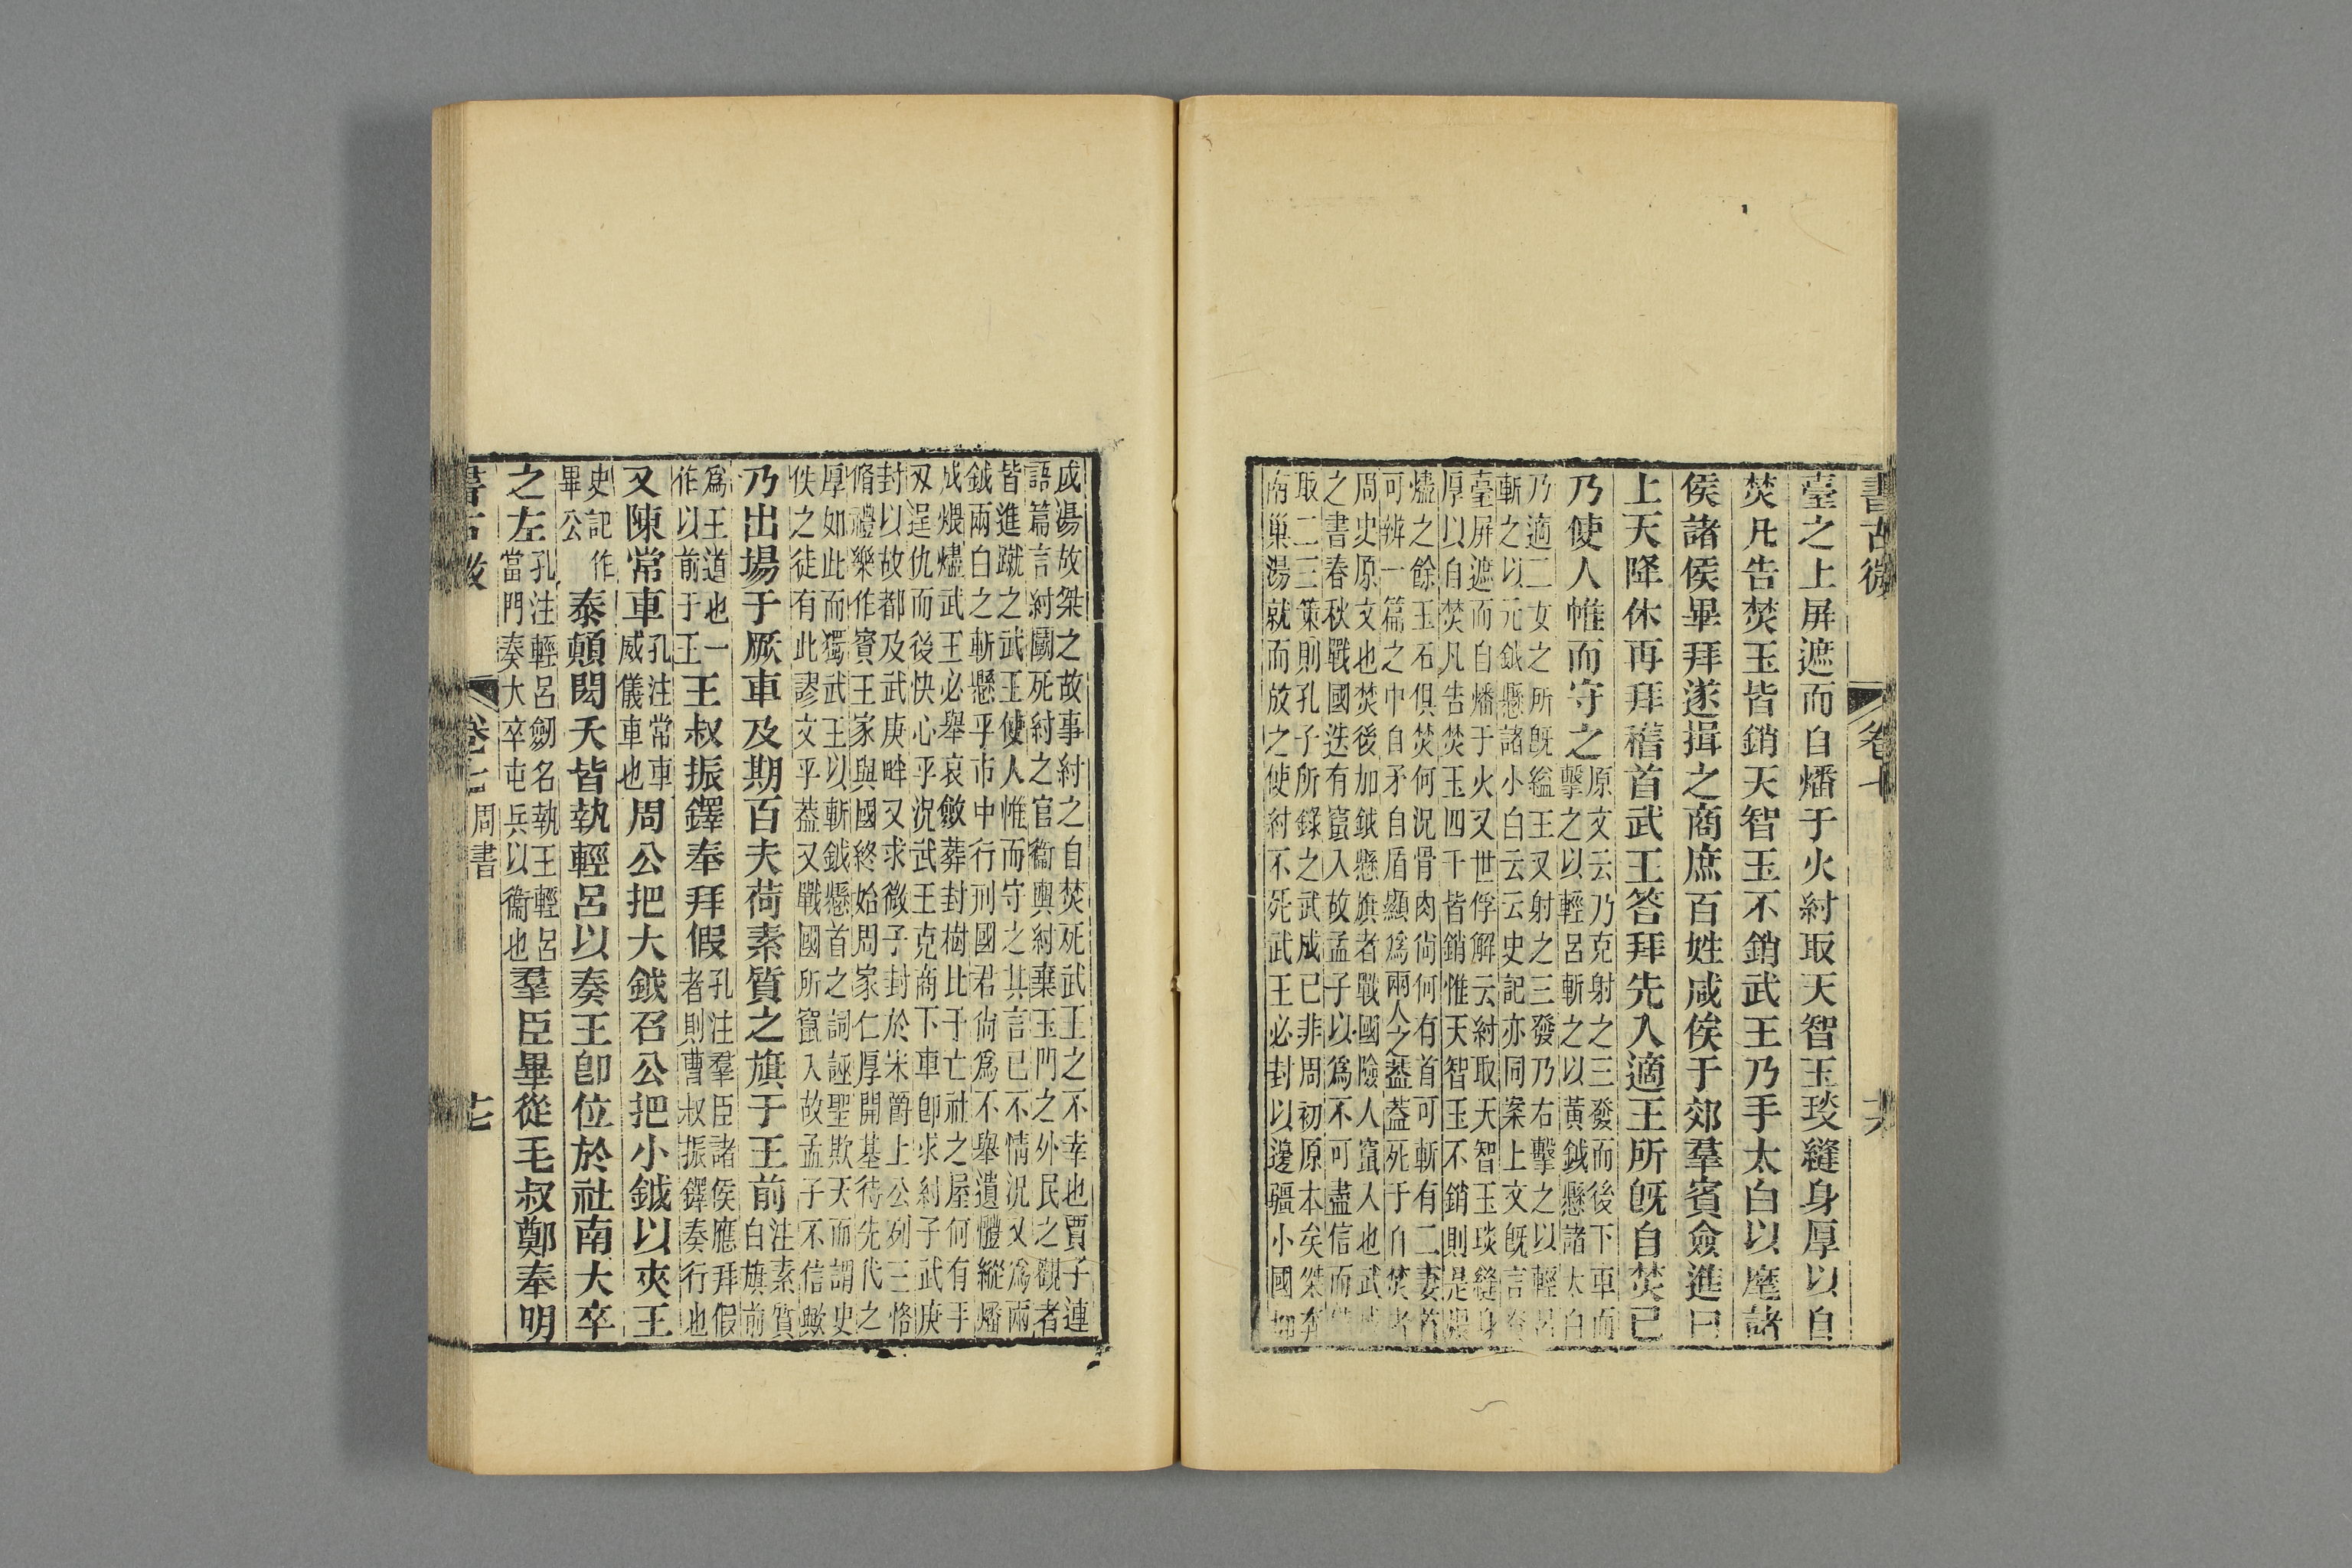 書古微 卷七 十六
臺之上屏遮而自燔于火紂取天智玉琰縫身厚以自
焚凡告焚玉皆銷天智玉不銷武王乃手太白以麾諸
侯諸侯畢拜遂揖之商庶百姓咸俟于郊羣賓僉進曰
上天降休再拜稽首武王答拜先入適王所旣自焚已
乃使人帷而守之
原文云乃克射之三發而後下車而
擊之以輕呂斬之以黃鉞懸諸太白
乃適二女之所旣縊王又射之三發乃右擊之以輕呂
斬之以元鉞懸諸小白云云史記亦同案上文旣言登
臺屏遮而自燔于火又世俘解云紂取天智玉琰縫身
厚以自焚凡告焚玉四千皆銷惟天智玉不銷則是
燼之餘玉石俱焚何況骨肉尙何有首可斬有二妻
可辨一篇之中自矛自盾顯爲兩人之葢葢死于自焚者
周史原文也焚後加鉞懸旗者戰國險人竄人也武成
之書春秋戰國迭有竄入故孟子以爲不可盡信而
取二三策則孔子所錄之武成已非周初原本矣桀奔
南巢湯就而放之使紂不死武王必封以邊疆小國
成湯故桀之故事紂之自焚死武王之不幸也賈子連
語篇言紂鬭死紂之官衞輿紂棄玉門之外民之觀者
皆進蹴之武王使人帷而守之其言已不情況又爲兩
鉞兩白之斬懸乎市中行刑國君尙爲不舉遺體縱燔
成煨燼武王必舉哀斂葬封樹比于亡社之屋何有手
刃逞仇而後快心乎況武王克商下車卽求紂子武庚
封以故都及武庚畔又求微子封於宋爵上公列三恪
脩禮樂作賓王家與國終始周家仁厚開基待先代之
厚如此而獨武王以斬鉞懸首之詞誣聖欺天而謂史
佚之徒有此謬文乎葢又戰國所竄入故孟子不信歟
乃出場于厥車及期百夫荷素質之旗于王前
注素質
白旗前
爲王道也一
作以前于王
王叔振鐸奉拜假
孔注羣臣諸侯應拜假
者則曹叔振鐸奏行也
又陳常車
孔注常車
威儀車也
周公把大鉞召公把小鉞以夾王
史記作
畢公
泰顛閎夭皆執輕呂以奏王卽位於社南大卒
之左
孔注輕呂劒名執王輕呂
當門奏大卒屯兵以衞也
羣臣畢從毛叔鄭奉明
書古微 卷七 周書 十七